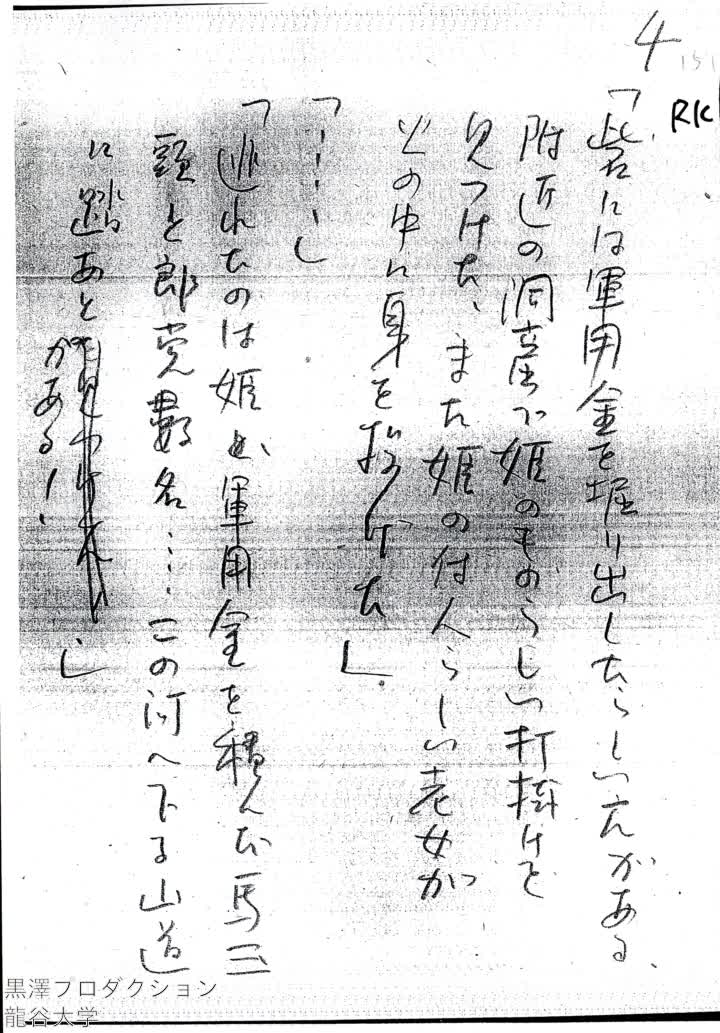 4
151
RK
「砦には軍用金を掘り出したらしい穴がある、
附近の洞窟で姫のものらしい打掛けを
見つけた、また姫の付人らしい老女が
火の中に身を投げた」
「・・・・」
「逃れたのは姫と軍用金を積んだ馬三
頭と郎党数名……この河へ下る山道
に踏あと
がある!」
黒澤プロダクション
龍谷大学